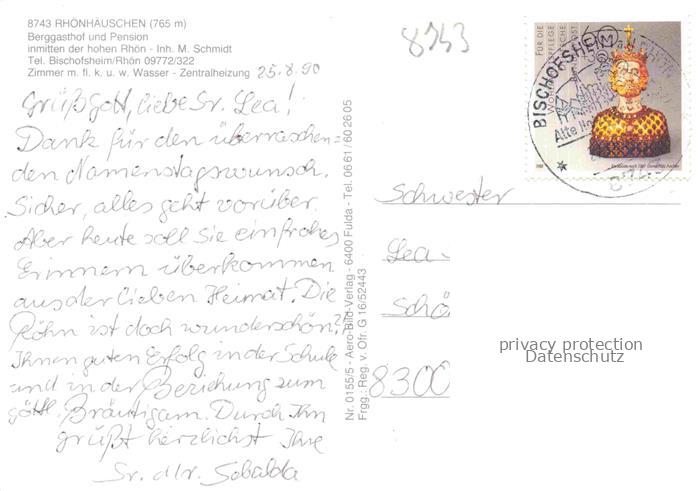 8743 RHÖNHÄUSCHEN (765 m)
Berggasthof und Pension
inmitten der hohen Rhön - Inh. M. Schmidt
Tel. Bischofsheim/Rhön 09772/322
Zimmer m. fl. k. u. w. Wasser - Zentralheizung
25.8.90
Grüß Gott, liebe Sr. Lea!
Dank für den überraschen=
den Namenstagswunsch.
Sicher, alles geht vorüber.
Aber heute soll Sie ein frohes
Erinnern überkommen
aus der lieben Heimat. Die
Röhn ist doch wunderschön?
Ihnen guten Erfolg in der Schule
und in der Beziehung zum
göttl. Bräutigam. Durch Ihn
grüßt herzlichst Ihre
Sr. Mr. Sebalda
Nr. 0155/5 - Aero-Bild-Verlag - 6400 Fulda - Tel. 06 61 / 60 26 05
Frgg.: Reg. v. Ofr. G 16/52443
8743
FÜR DIE
WOHLFAHRTSPFLEGE
BISCHOFSHEIM
Schwester
Lea
Schö
8300
privacy protection
Datenschutz